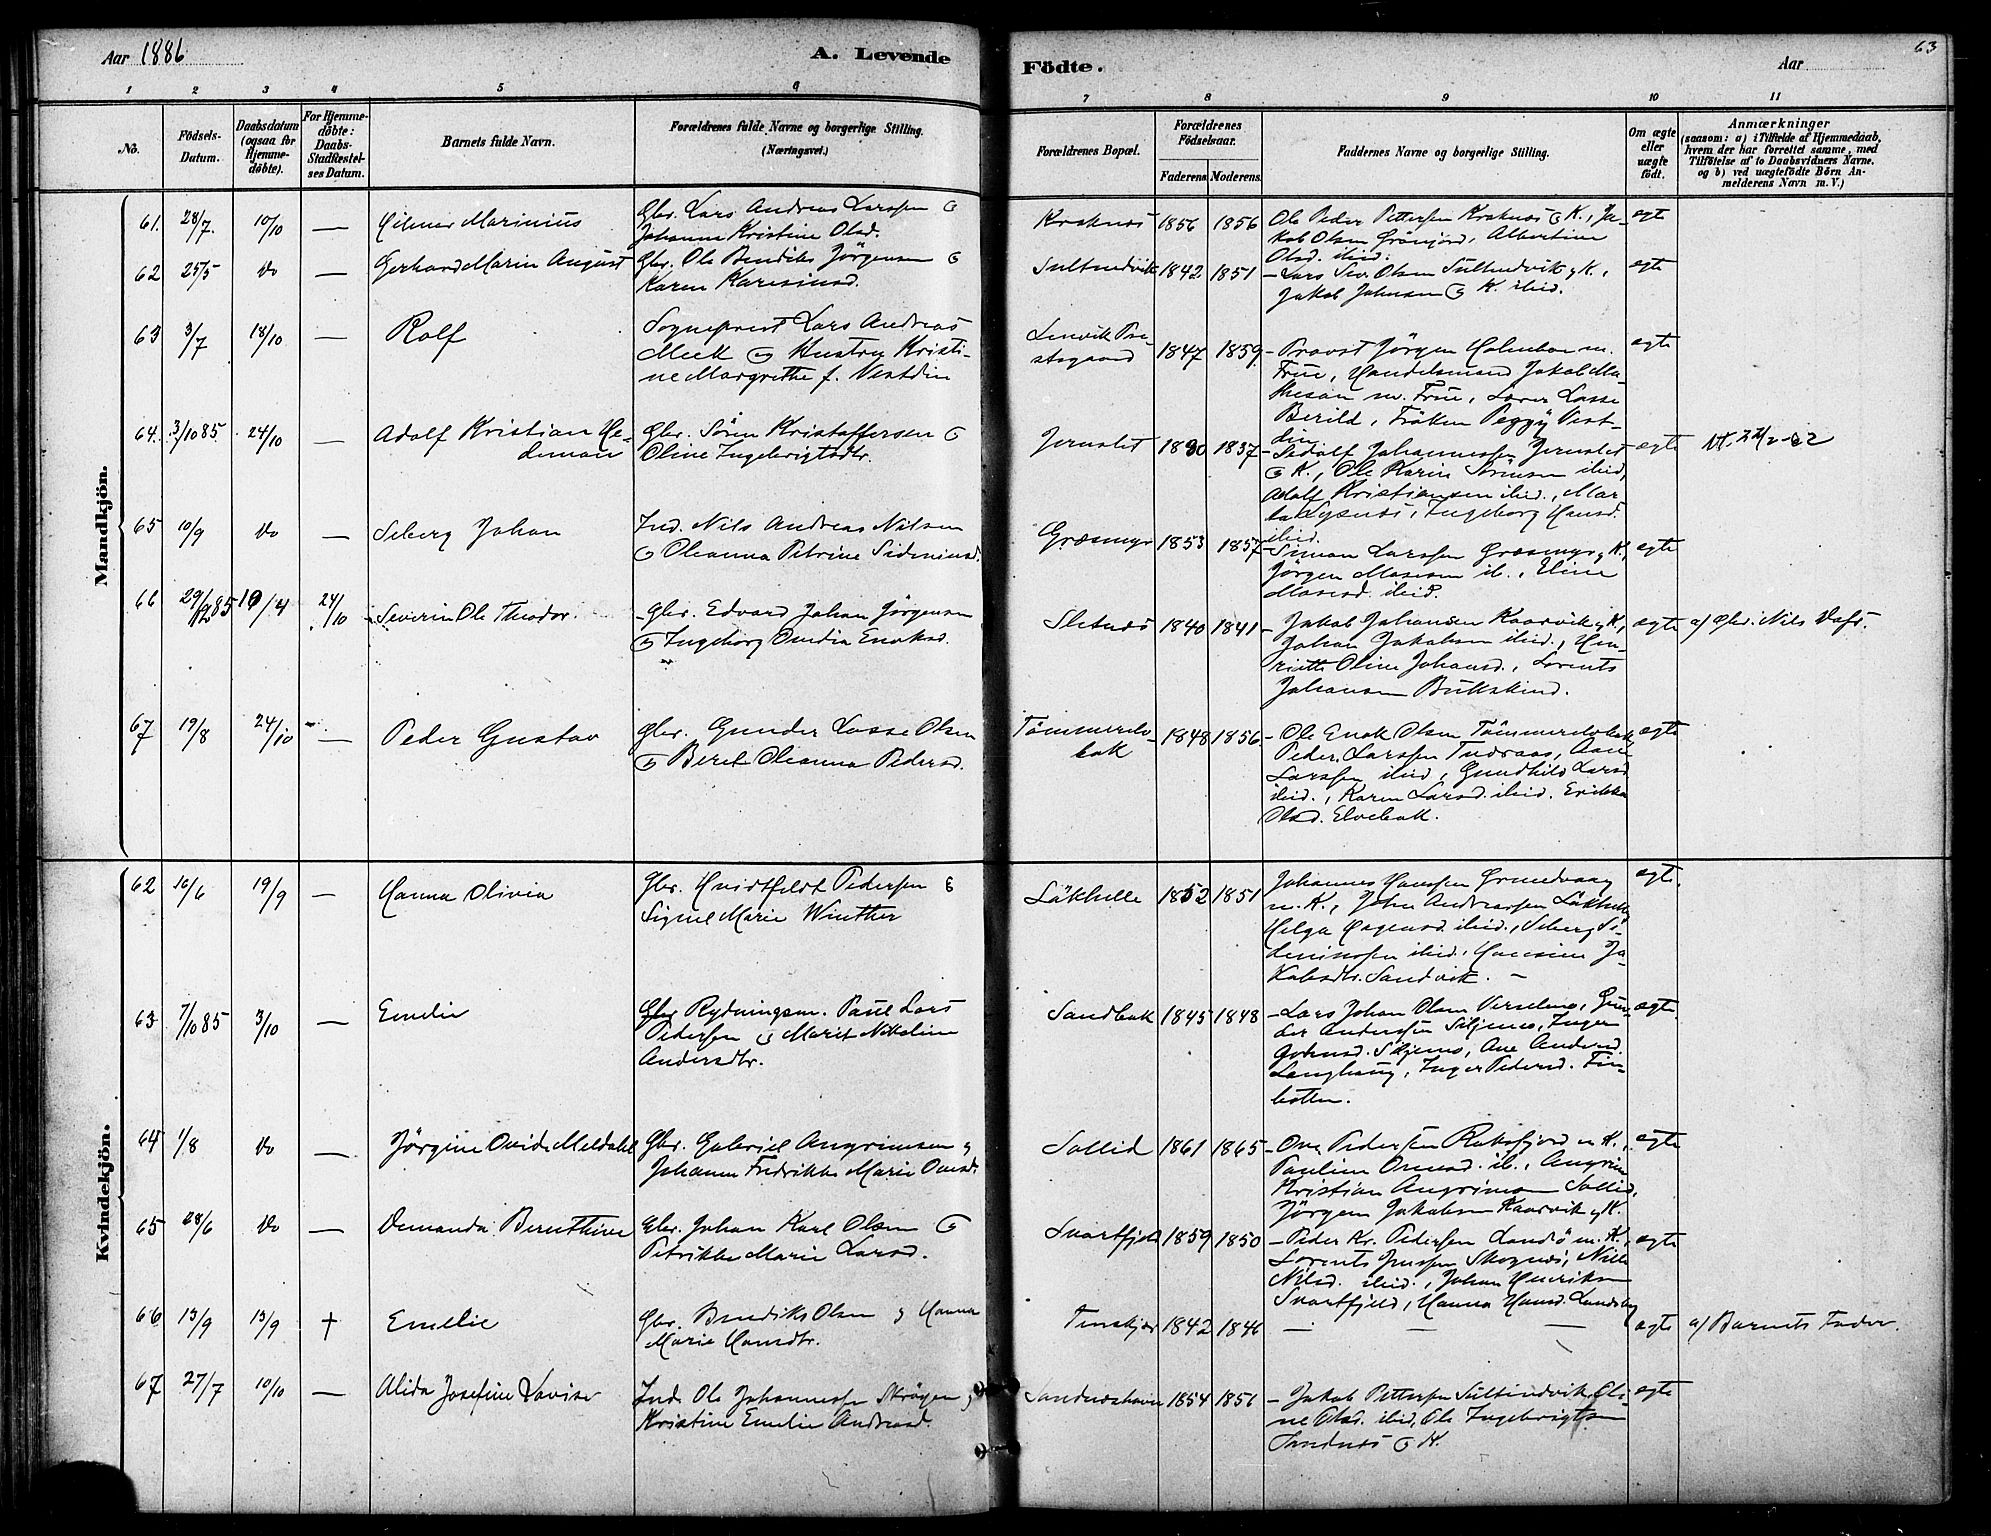 Aar 1886
A. Levende
Födte.
Aar
63
1 2 3 4 5 6 7 8 9 10 11
No.
Födsels-
Datum.
Daabsdatum
(ogsaa for
Hjemme-
döbte).
For Hjemme-
döbte:
Daabs-
Stadfæstel-
ses Datum.
Barnets fulde Navn.
Forældrenes fulde Navne og borgerlige Stilling.
(Næringsvei.)
Forældrenes Bopæl.
Forældrenes
Födselsaar.
Faderens. Moderens.
Faddernes Navne og borgerlige Stilling.
Om ægte
eller
uægte
födt.
Anmærkninger
(saasom: a) i Tilfælde af Hjemmedaab,
hvem der har forrettet samme, med
Tilföielse af to Daabsvidners Navne.
og b) ved uægtefödte Börn An-
melderens Navn m. V.)
Mandkjön.
61. 28/7. 10/10 — Hilmar Marinius
Gbr. Lars Andreas Larssen &
Johanna Kristine Olsd.
Kraknæs 1856 1856
Ole Peder Pettersen Kraknæs & K., Ja-
kob Olsen Grönjord, Albertine
Olsd. ibid.
ægte
62 25/5 do — Gerhard Marin August
Gbr. Ole Bendiks Jörgensen &
Karen Karesiusd.
Sultindvik 1842 1851
— Lars Siv. Olsen Sultindvik & K.,
Jakob Johnsen & K. ibid.
ægte
63 3/7 18/10 — Rolf
Sogneprest Lars Andreas
Meek og Hustru Kristi-
ne Margrethe f. Vestdin
Lenvik Pre-
stegaard 1847 1859
— Provst Jörgen Holmboe m.
Frue, Handelsmand Jakob Ma-
thesen m. Frue, Lærer Lasse
Berild, Fröken Peggy Vest-
din
ægte
64. 3/10 85 24/10 — Adolf Kristian He-
deman
Gbr. Sören Kristoffersen &
Oline Ingebrigtsdtr.
Jernslet 1830 1837
— Sedolf Johannessen Jernslet
& K., Ole Karin Sörensen ibid,
Adolf Kristiansen ibid., Mar-
ta Lysnæs, Ingeborg Hansd.
ibid.
ægte
65 10/9 do — Seberg Johan
Ind. Nils Andreas Nilsen
& Oleanna Petrine Sideniusd.
Græsmyr 1853 1857
— Simon Larssen Græsmyr & K.,
Jörgen Mosesen ib., Eline
Mosesd. ibid.
ægte
66 29/12 85 10/4 24/10 Severin Ole Theodor.
Gbr. Edvard Johan Jörgensen
& Ingeborg Ovidia Enoksd.
Sletnæs 1840 1841
— Jakob Johansen Kaarvik & K.,
Johan Jakobsen ibid., Hen-
riette Oline Johansd., Lorents
Johansen Bukskind.
ægte a) Gbr. Nils Dafr.
67 19/8 24/10 — Peder Gustav
Gbr. Gunder Lasse Olsen
& Beret Oleanna Pedersd.
Tömmerelv-
bak 1848 1856
— Ole Enok Olsen Tömmerelvbak
Peder Larssen Tudraas, Ane
Larssen ibid, Gundhild Larsd.
ibid., Karen Larsd. ibid. Erikka
Olsd. Elvebak.
ægte
Kvindekjön.
62 16/6 19/9 — Hanna Olivia
Gbr. Hvidtfeldt Pedersen &
Signe Marie Winther
Läkhelle 1852 1851
Johannes Hanssen Grundvaag
m. K., John Andreassen Läkhelle
Helga Hagensd. ibid., Seberg Si-
deniussen ibid., Hansine Ja-
kobsdtr. Sandvik. —
ægte.
63 7/10 85 3/10 — Emelie
Gbr Rydningsm. Paul Lars
Pedersen & Marit Nikoline
Andersdtr.
Sandbak 1845 1848
— Lars Johan Olsen Verselmo, Gun-
der Anderssen Siljemo, Inger
Johnsd. Siljemo, Ane Andersd.
Langhaug, Inger Pedersd. Fin-
botten.
ægte
64 1/8 do — Jörgine Ovide Meldahl
Gbr. Gabriel Angrimsen &
Johanne Fredrikke Marie Ovesd.
Sollid 1861 1865
— Ove Pedersen Roksfjord m K.,
Pauline Ovesd. ib., Angrim
Kristian Angrimsen Sollid,
Jörgen Jakobsen Kaarvik & K.
ægte
65 28/6 do — Demanda Bernthine
Gbr. Johan Karl Olsen &
Petrikke Marie Larsd.
Svartfjeld 1859 1850
— Peder Kr. Pedersen Landsö m. K.,
Lorents Jenssen Skognæs, Nille
Nilsd. ibid., Johan Henriksen
Svartfjeld, Hanna Hansd. Landsby
ægte
66 13/9 13/9 † Emelie
Gbr. Bendiks Olsen & Hanna
Marie Hansdtr.
Finskjær 1842 1846 — — —
ægte a) Barnets Fader.
67 27/7 10/10 — Alida Josefine Lovise
Ind. Ole Johannessen Skrögen &
Kristine Emelie Andreasd.
Sandnæshavn 1854 1856
— Jakob Pettersen Sultindvik, Oli-
ne Olsd. ibid, Ole Ingebrigtsen
Sandnæs & K.
ægte